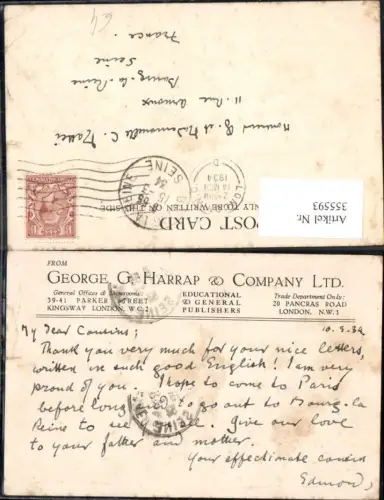 POST CARD
ONLY TO BE WRITTEN
Monsieur G. et Mademoiselle C. Mattei
11. Rue Arnoux
Bourg-la-Reine
Seine
France.
SEINE
1934
Artikel Nr.
355593
FROM
GEORGE G. HARRAP & COMPANY LTD.
General Offices & Showrooms:
39-41 PARKER STREET
KINGSWAY LONDON, W.C.2
EDUCATIONAL
& GENERAL
PUBLISHERS
Trade Department Only:
20 PANCRAS ROAD
LONDON, N.W.1
My Dear Cousins; 10.3.34
Thank you very much for your nice letters,
written in such good English! I am very
proud of you. I hope to come to Paris
before long to go out to Bourg-la
Reine to see Give our love
to your father and mother.
Your affectionate cousin
Edmond,